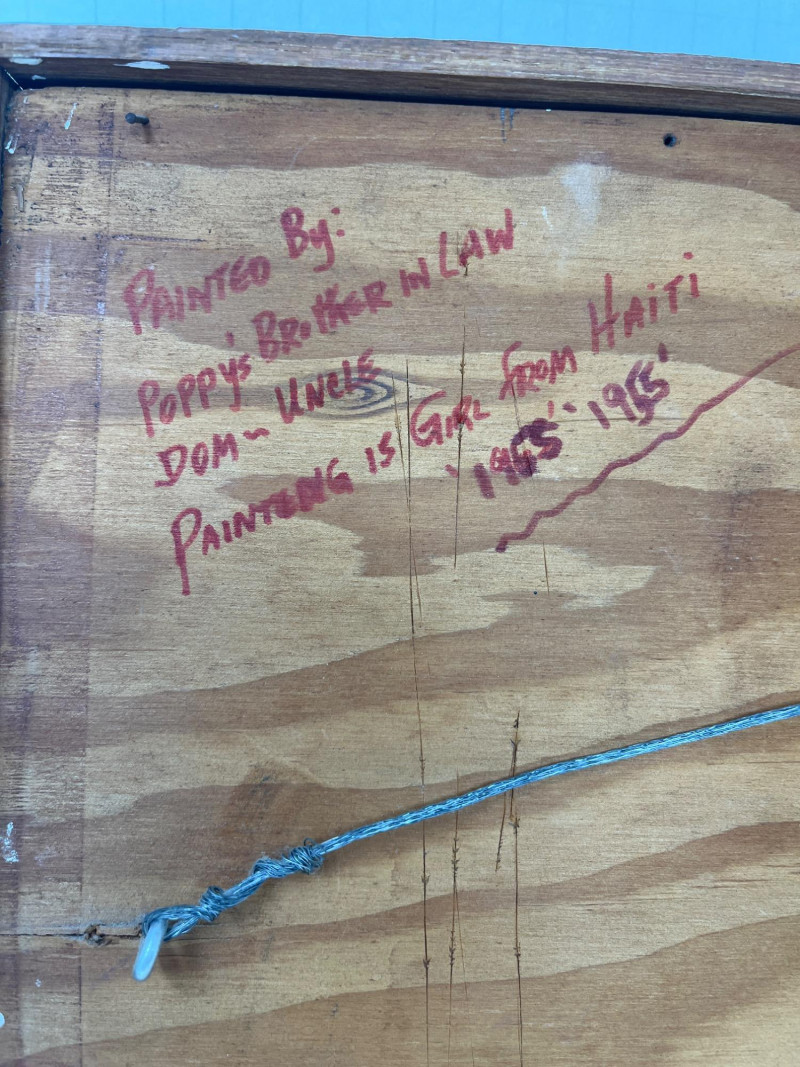 PAINTED By:
POPPy's BROTHER IN LAW
DOM~ UNCLE
PAINTING iS GIRL FROM HAiTi
'1955' '1955'